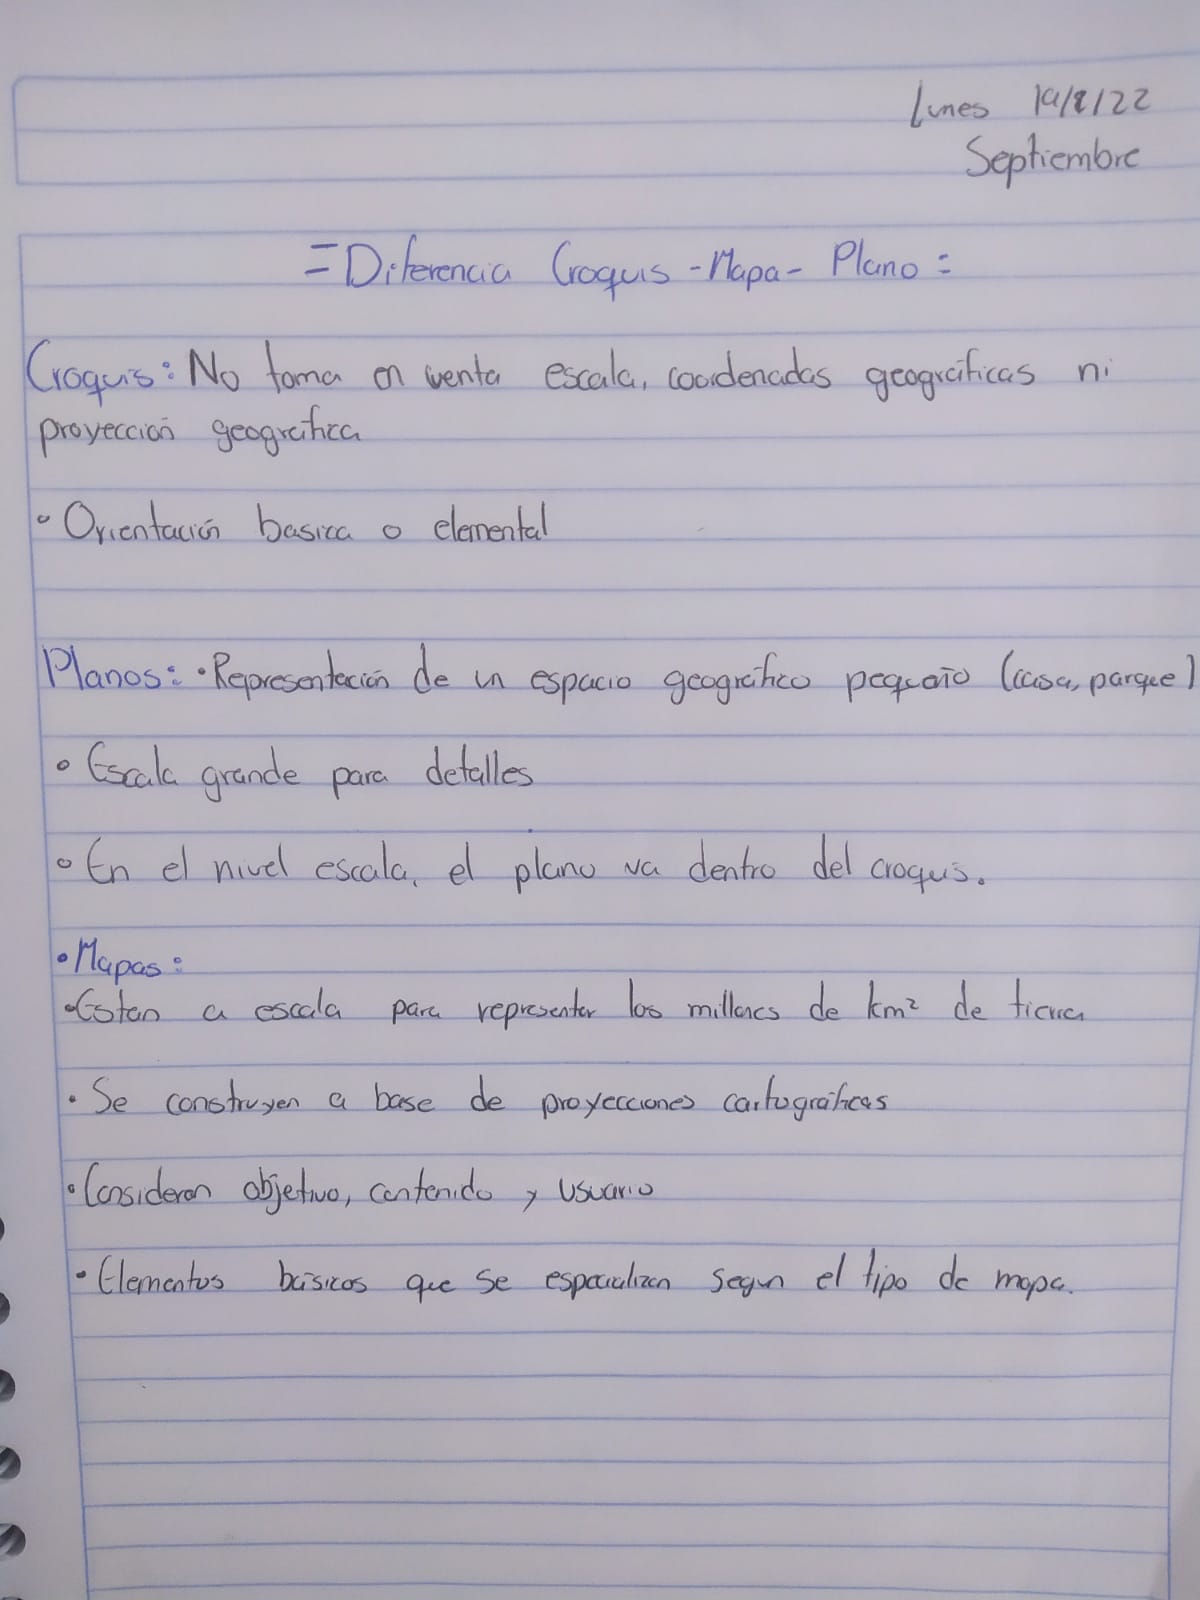 Lunes 19/8/22
Septiembre
=Diferencia Croquis -Mapa- Plano=
Croquis: No toma en cuenta escala, coordenadas geográficas ni
proyección geográfica
• Orientación basica o elemental
Planos: • Representación de un espacio geográfico pequeño (casa, parque)
• Escala grande para detalles
• En el nivel escala, el plano va dentro del croquis.
• Mapas:
• Estan a escala para representar los millares de km² de tierra
• Se construyen a base de proyecciones cartográficas
• Consideran objetivo, contenido y usuario
• Elementos básicos que se especializan segun el tipo de mapa.